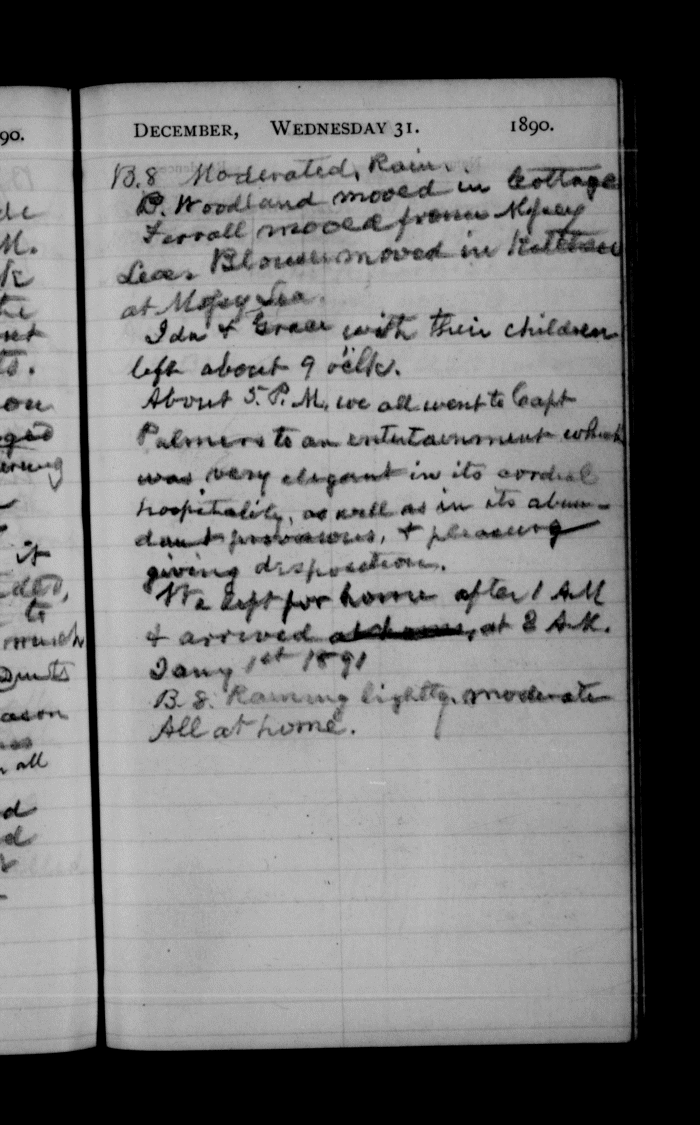 90.
DECEMBER, WEDNESDAY 31. 1890.
B. 8 Moderated, Rain.
B. Woodland moved in Cottage
Ferrall mooed from Mosey
Lea. Blouser moved in
at Mosey Lea.
Ida & Grace with their children
left about 9 oclk.
About 5. P. M. we all went to Capt
Palmers to an entertainment which
was very elegant in its cordial
hospitality, as well as in its abun-
dant provisions, & pleasing
giving disposition.
We left for home after 1 A M
& arrived at home, at 2 A. M.
Jany 1st 1891
B. 8. Raining lightly. moderate
All at home.
M.
k
it
to
much
ason
all
d
d